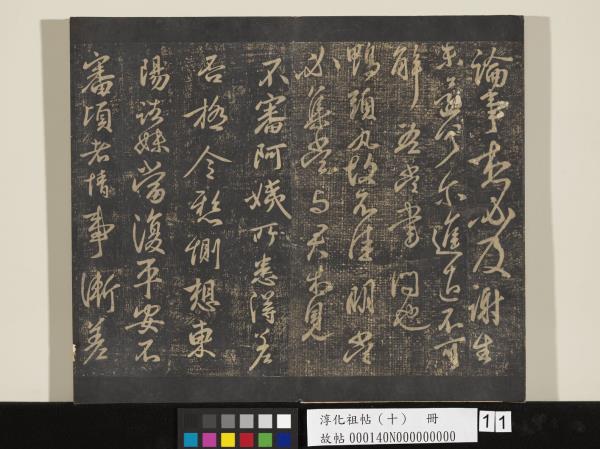 論事想必及謝生
未還何尔進退不可
解吾當書問也
鴨頭丸故不佳明當
必集當与君相見
不審阿姨所患得差
否極令懸惻想東
陽諸妹當復平安不
審頃者情事漸差
淳化祖帖(十) 冊
故帖000140N000000000
11